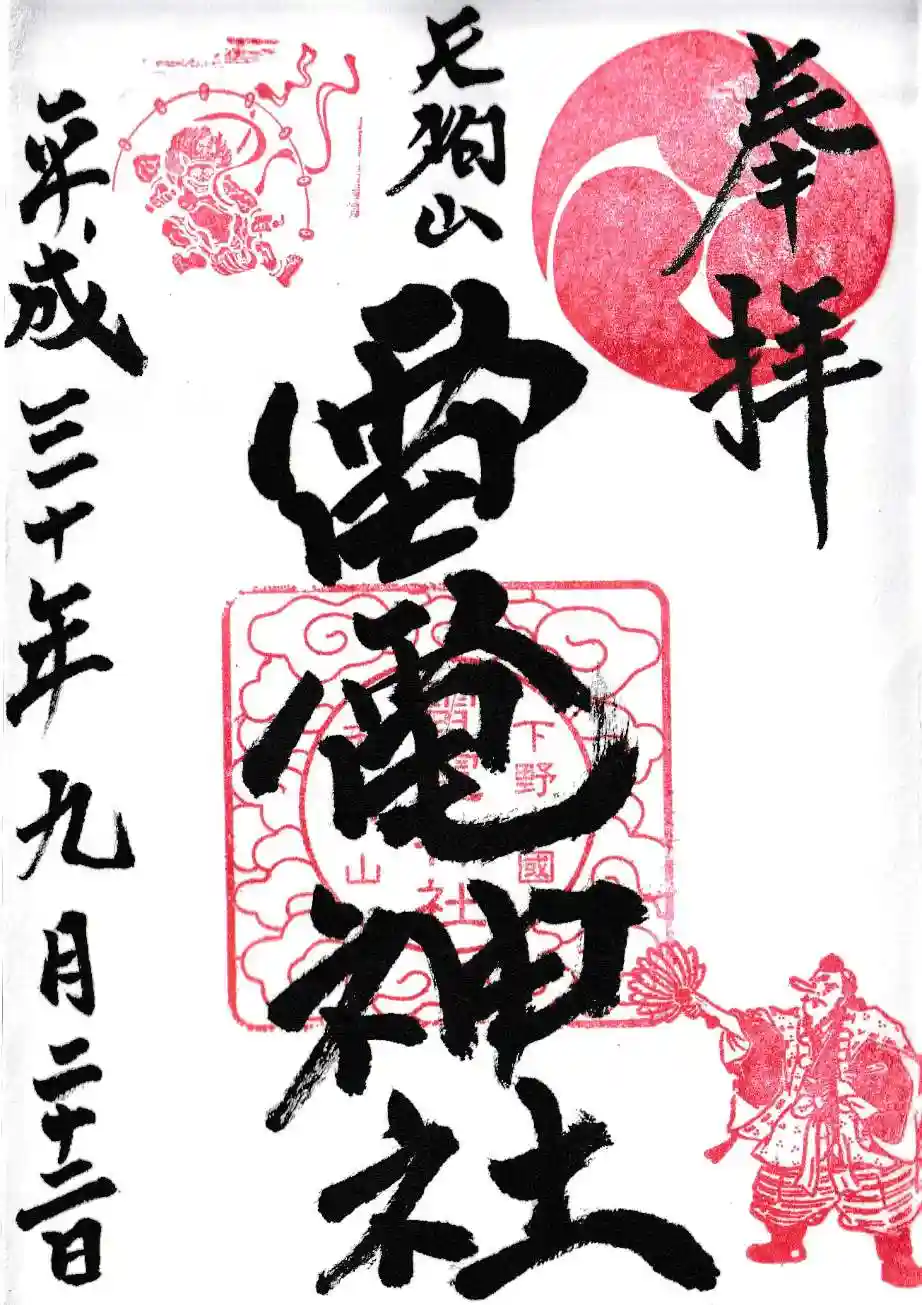 奉拝
天狗山
雷電神社
平成三十年九月二十二日
下野
國
山
社